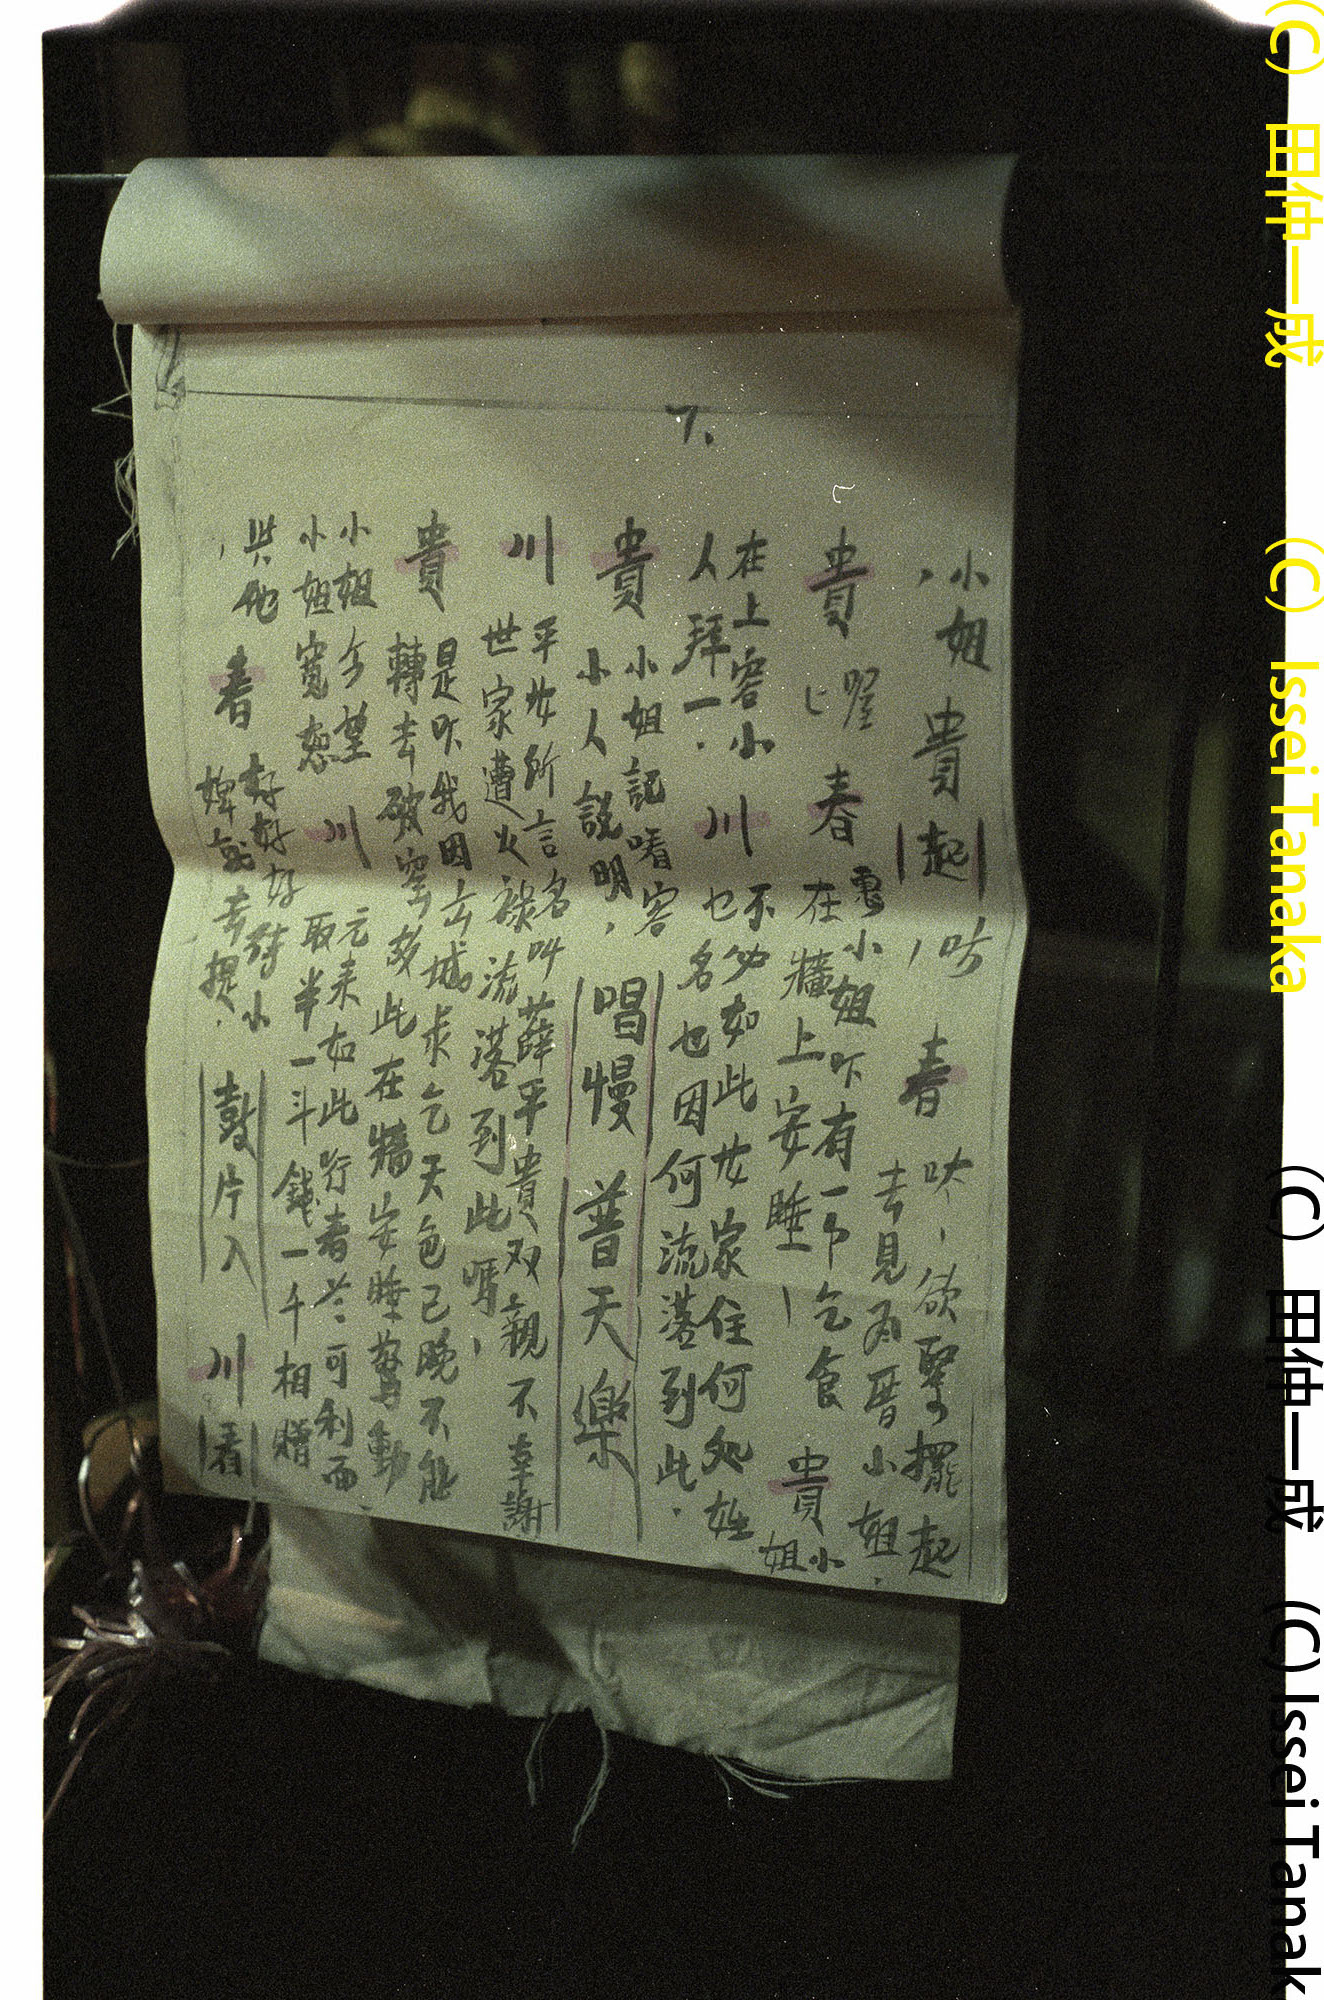 7、
，小姐 貴起 吓，
春 吠、欲緊擺起
去見為厝小姐．
貴 喔匕
春 禀小姐吓有一吊乞食
在牆上安睡、
貴 小姐
在上容小
人拜一．
川 不必如此女家住何処姓
也名也因何流落到此．
貴 小姐記啫容
小人説明，
唱慢 普天樂
川
平女所言名叫薛平貴双親不幸謝
世家遭火祿流落到此嗎、
貴 是吓我因去城求乞天色已晚不能
轉去破窑 此在牆安睡驚動
小姐今望
小姐寬恕
川 元来如此行者 可利而
取半一斗錢一千相贈
與他
春 好好好待小
婢 去提．
鼓片入
川 看
(C) 田仲一成 (C) Issei Tanaka (C) 田仲一成 (C) Issei Tanak